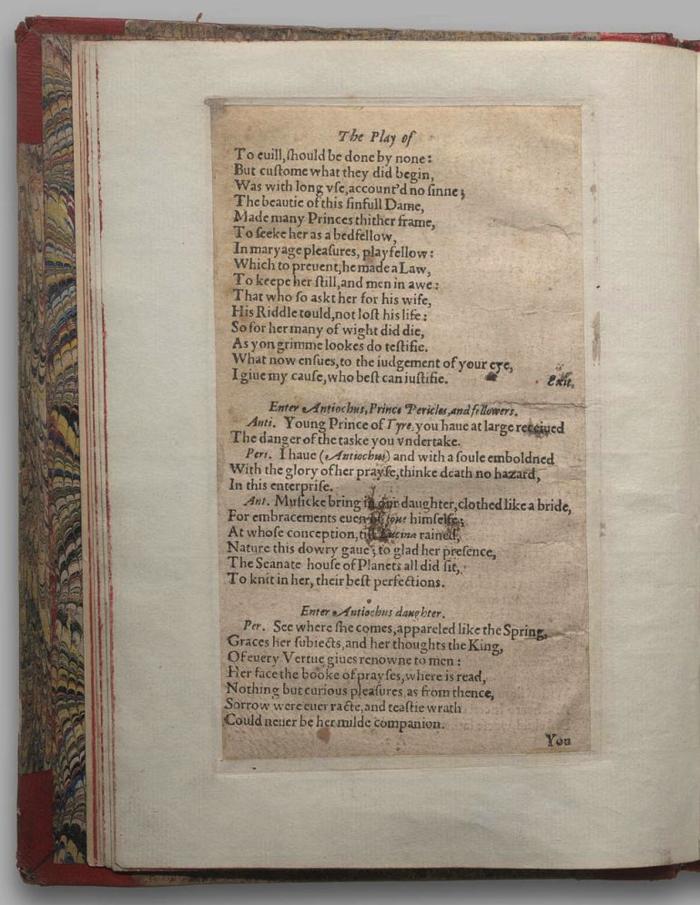 The Play of
To euill,ſhould be done by none:
But cuſtome what they did begin,
Was with long vſe,account'd no ſinne;
The beautie of this ſinfull Dame,
Made many Princes thither frame,
To ſeeke her as a bedfellow,
In maryage pleaſures, playfellow:
Which to preuent,he made a Law,
To keepe her ſtill,and men in awe:
That who ſo askt her for his wife,
His Riddle tould,not loſt his life:
So for her many of wight did die,
As yon grimme lookes do teſtifie.
What now enſues,to the iudgement of your eye,
I giue my cauſe,who beſt can iuſtifie. Exit.
Enter Antiochus,Prince Pericles,and followers.
Anti. Young Prince of Tyre,you haue at large receiued
The danger of the taske you vndertake.
Peri. I haue (Antiochus) and with a ſoule emboldned
With the glory of her prayſe,thinke death no hazard,
In this enterpriſe.
Ant. Muſicke bring in our daughter,clothed like a bride,
For embracements euen of Ioue himſelfe;
At whoſe conception,till Lucina rained,
Nature this dowry gaue; to glad her preſence,
The Seanate houſe of Planets all did ſit,
To knit in her, their beſt perfections.
Enter Antiochus daughter.
Per. See where ſhe comes,appareled like the Spring,
Graces her ſubiects,and her thoughts the King,
Of euery Vertue giues renowne to men:
Her face the booke of prayſes,where is read,
Nothing but curious pleaſures as from thence,
Sorrow were euer racte,and teaſtie wrath
Could neuer be her milde companion.
You